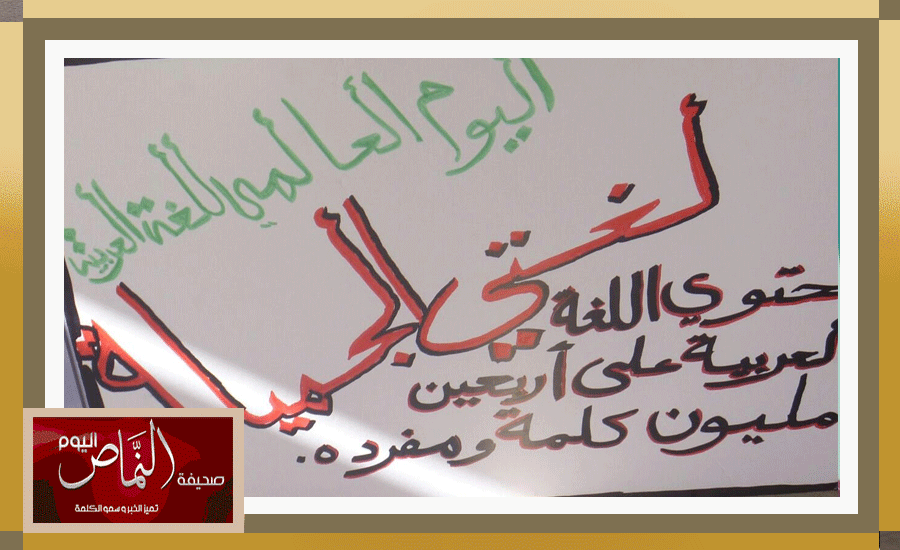 اليوم العالمي للغة العربية
لغتي الجميلة
حتوي اللغة
لعربية على أربعين
مليون كلمة ومفرده.
صحيفة النَّماص اليوم
تميز الخبر وسمو الكلمة